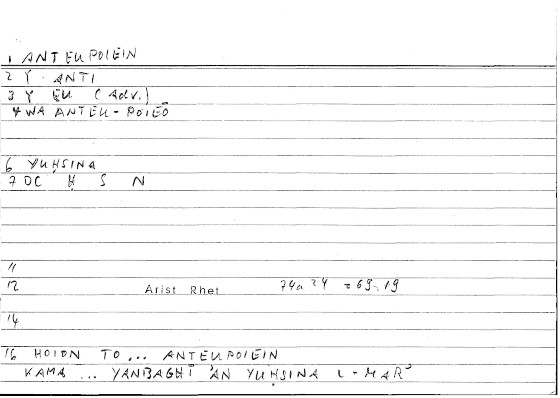 1 ANTEUPOIEIN
2 Y ANTI
3 Y EU (Adv.)
4 WA ANTEU-POIEŌ
6 YUḤSINA
7 DC Ḥ S N
11
12 Arist Rhet 74a 24 = 69,19
14
16 HOION TO ... ANTEUPOIEIN
KAMA ... YANBAGHĪ 'AN YUḤSINA L-MAR'